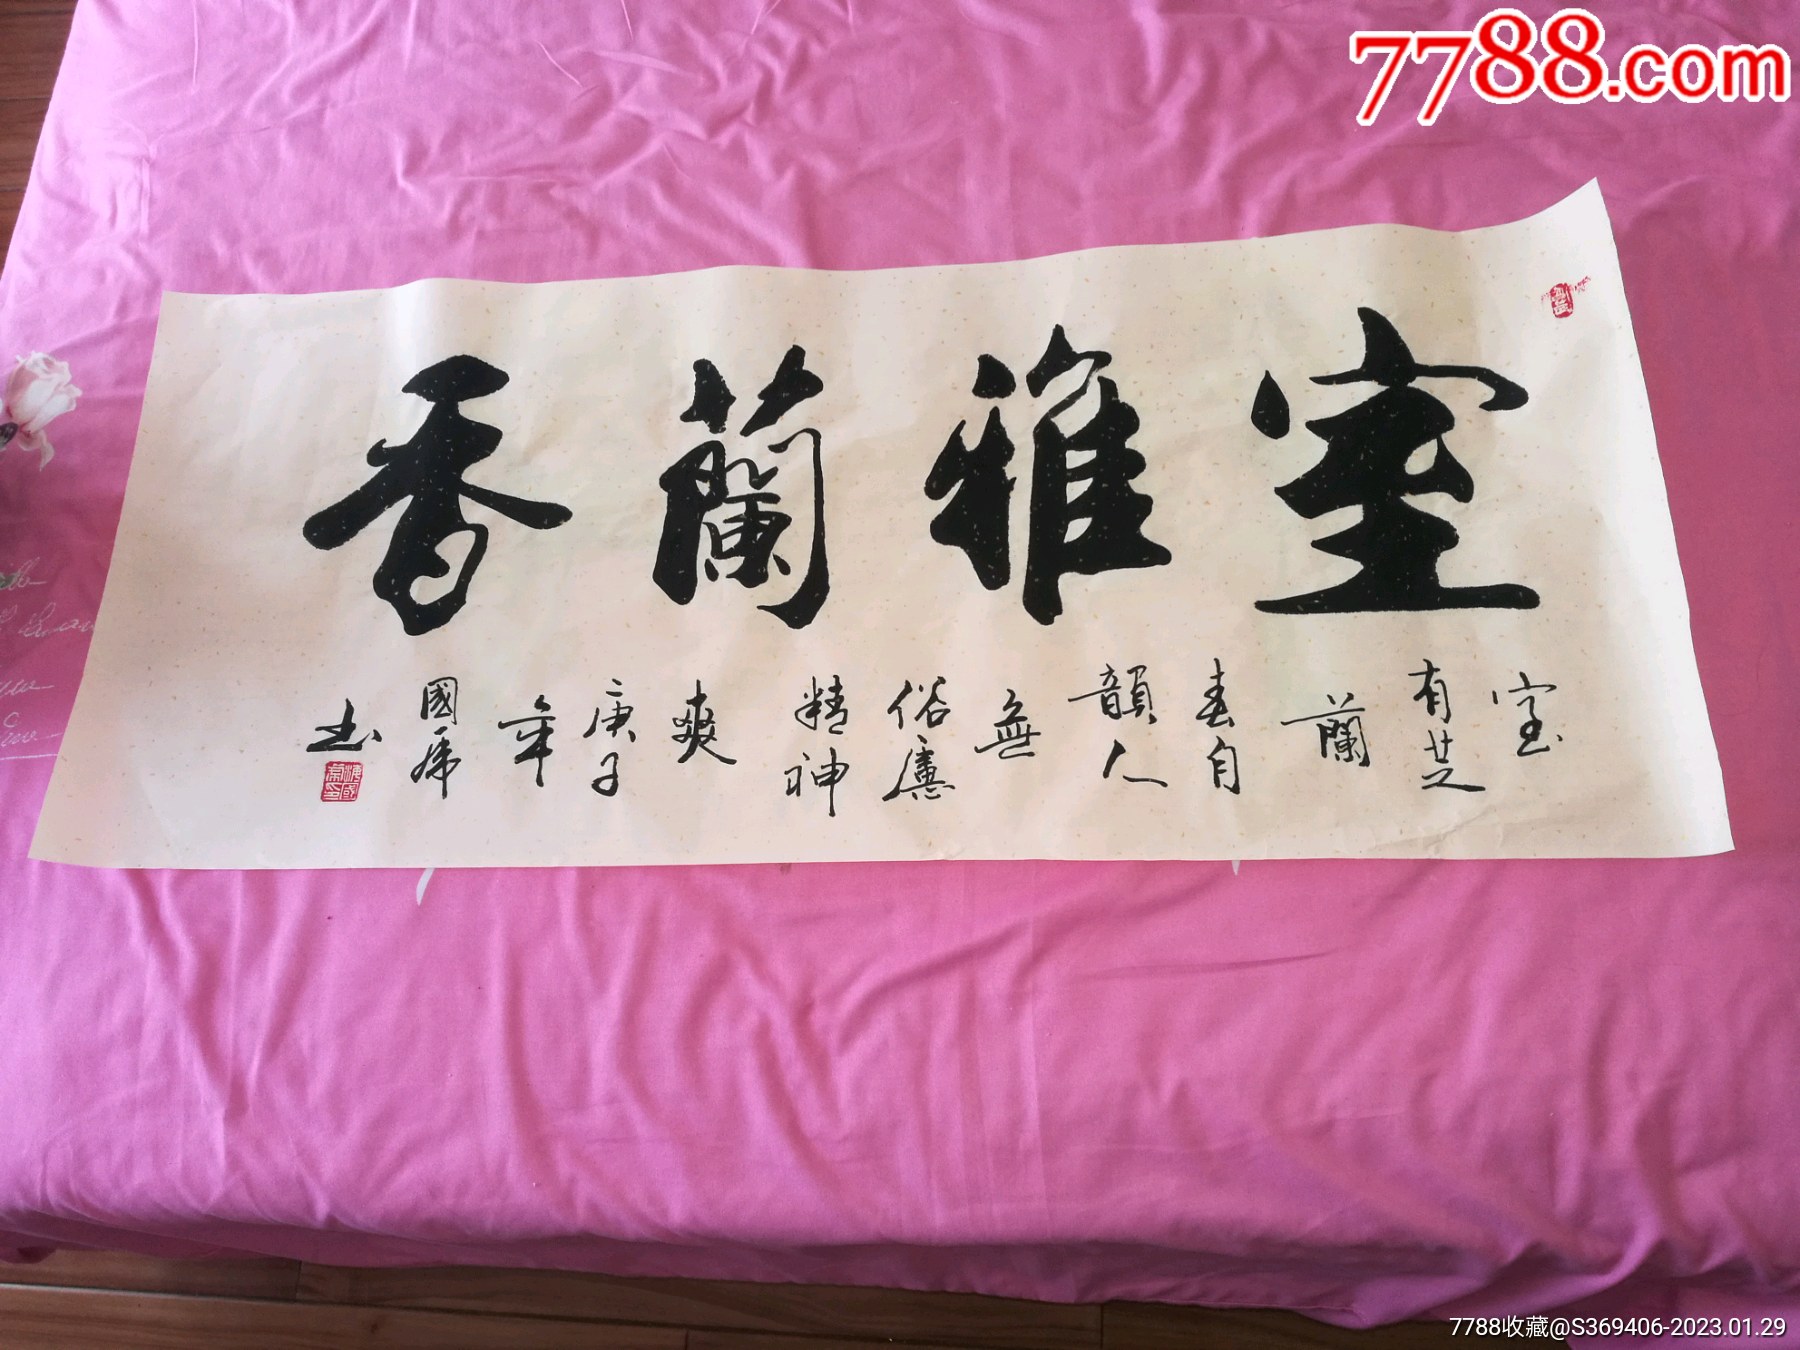 7788.com
室雅蘭香
室
有芝
蘭
春自
韻人
無
俗慮
精神
爽
庚子
年
國
书
7788收藏@S369406-2023.01.29